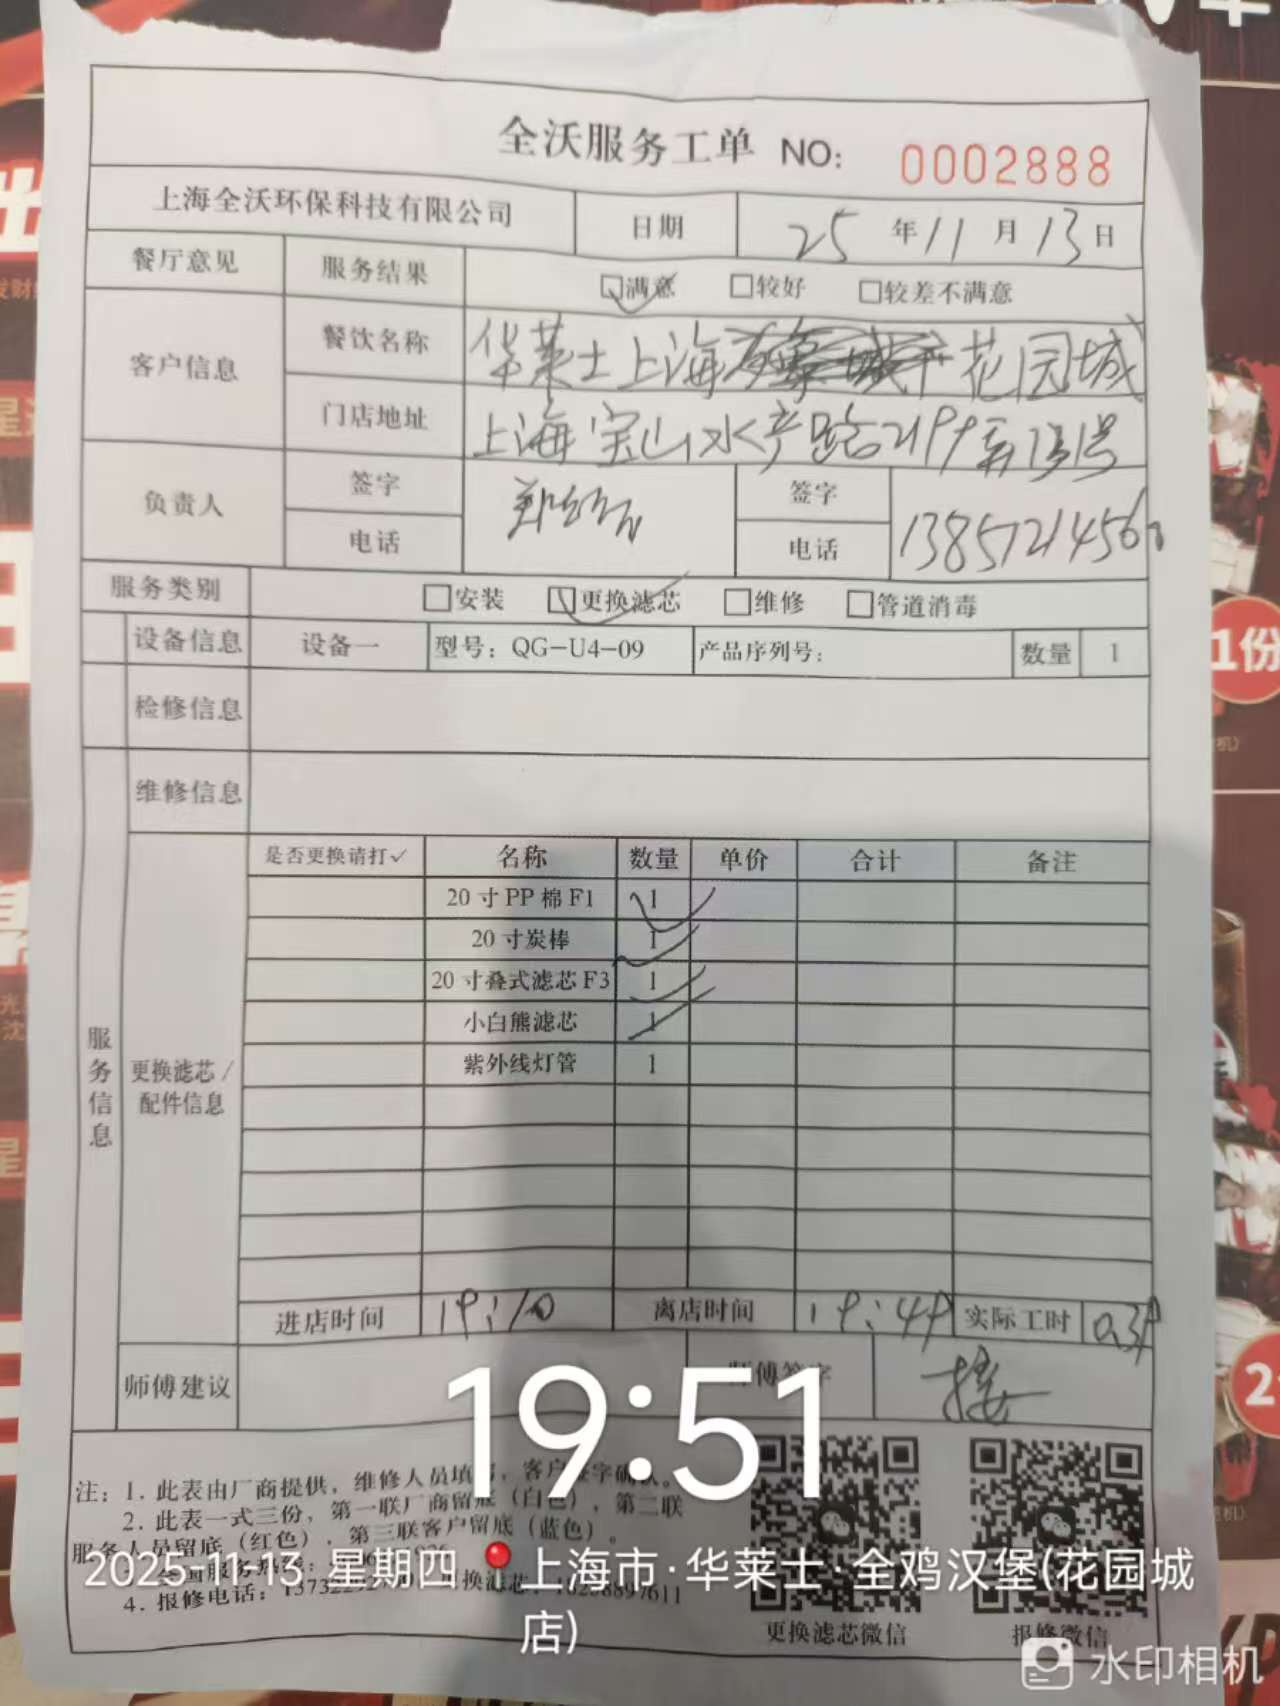 全沃服务工单 NO: 0002888
上海全沃环保科技有限公司 日期 25 年 11 月 13 日
餐厅意见 服务结果 满意 较好 较差不满意
客户信息 餐饮名称 华莱士上海 花园城
门店地址 上海宝山水产路2199弄
负责人 签字 签字
电话 电话
服务类别 安装 更换滤芯 维修 管道消毒
设备信息 设备一 型号：QG-U4-09 产品序列号： 数量 1
检修信息
维修信息
服务信息
更换滤芯/配件信息
是否更换请打✓ 名称 数量 单价 合计 备注
20寸PP棉F1 1
20寸炭棒 1
20寸叠式滤芯F3 1
小白熊滤芯 1
紫外线灯管 1
进店时间 19:10 离店时间 19:49 实际工时 0.39
师傅建议 师傅签字
注：1. 此表由厂商提供，维修人员填写，客户签字确认。
2. 此表一式三份，第一联厂商留底（白色），第二联
服务人员留底（红色），第三联客户留底（蓝色）。
4. 报修电话：
更换滤芯微信 报修微信
19:51
2025-11-13 星期四 上海市·华莱士·全鸡汉堡(花园城
店)
水印相机
1份